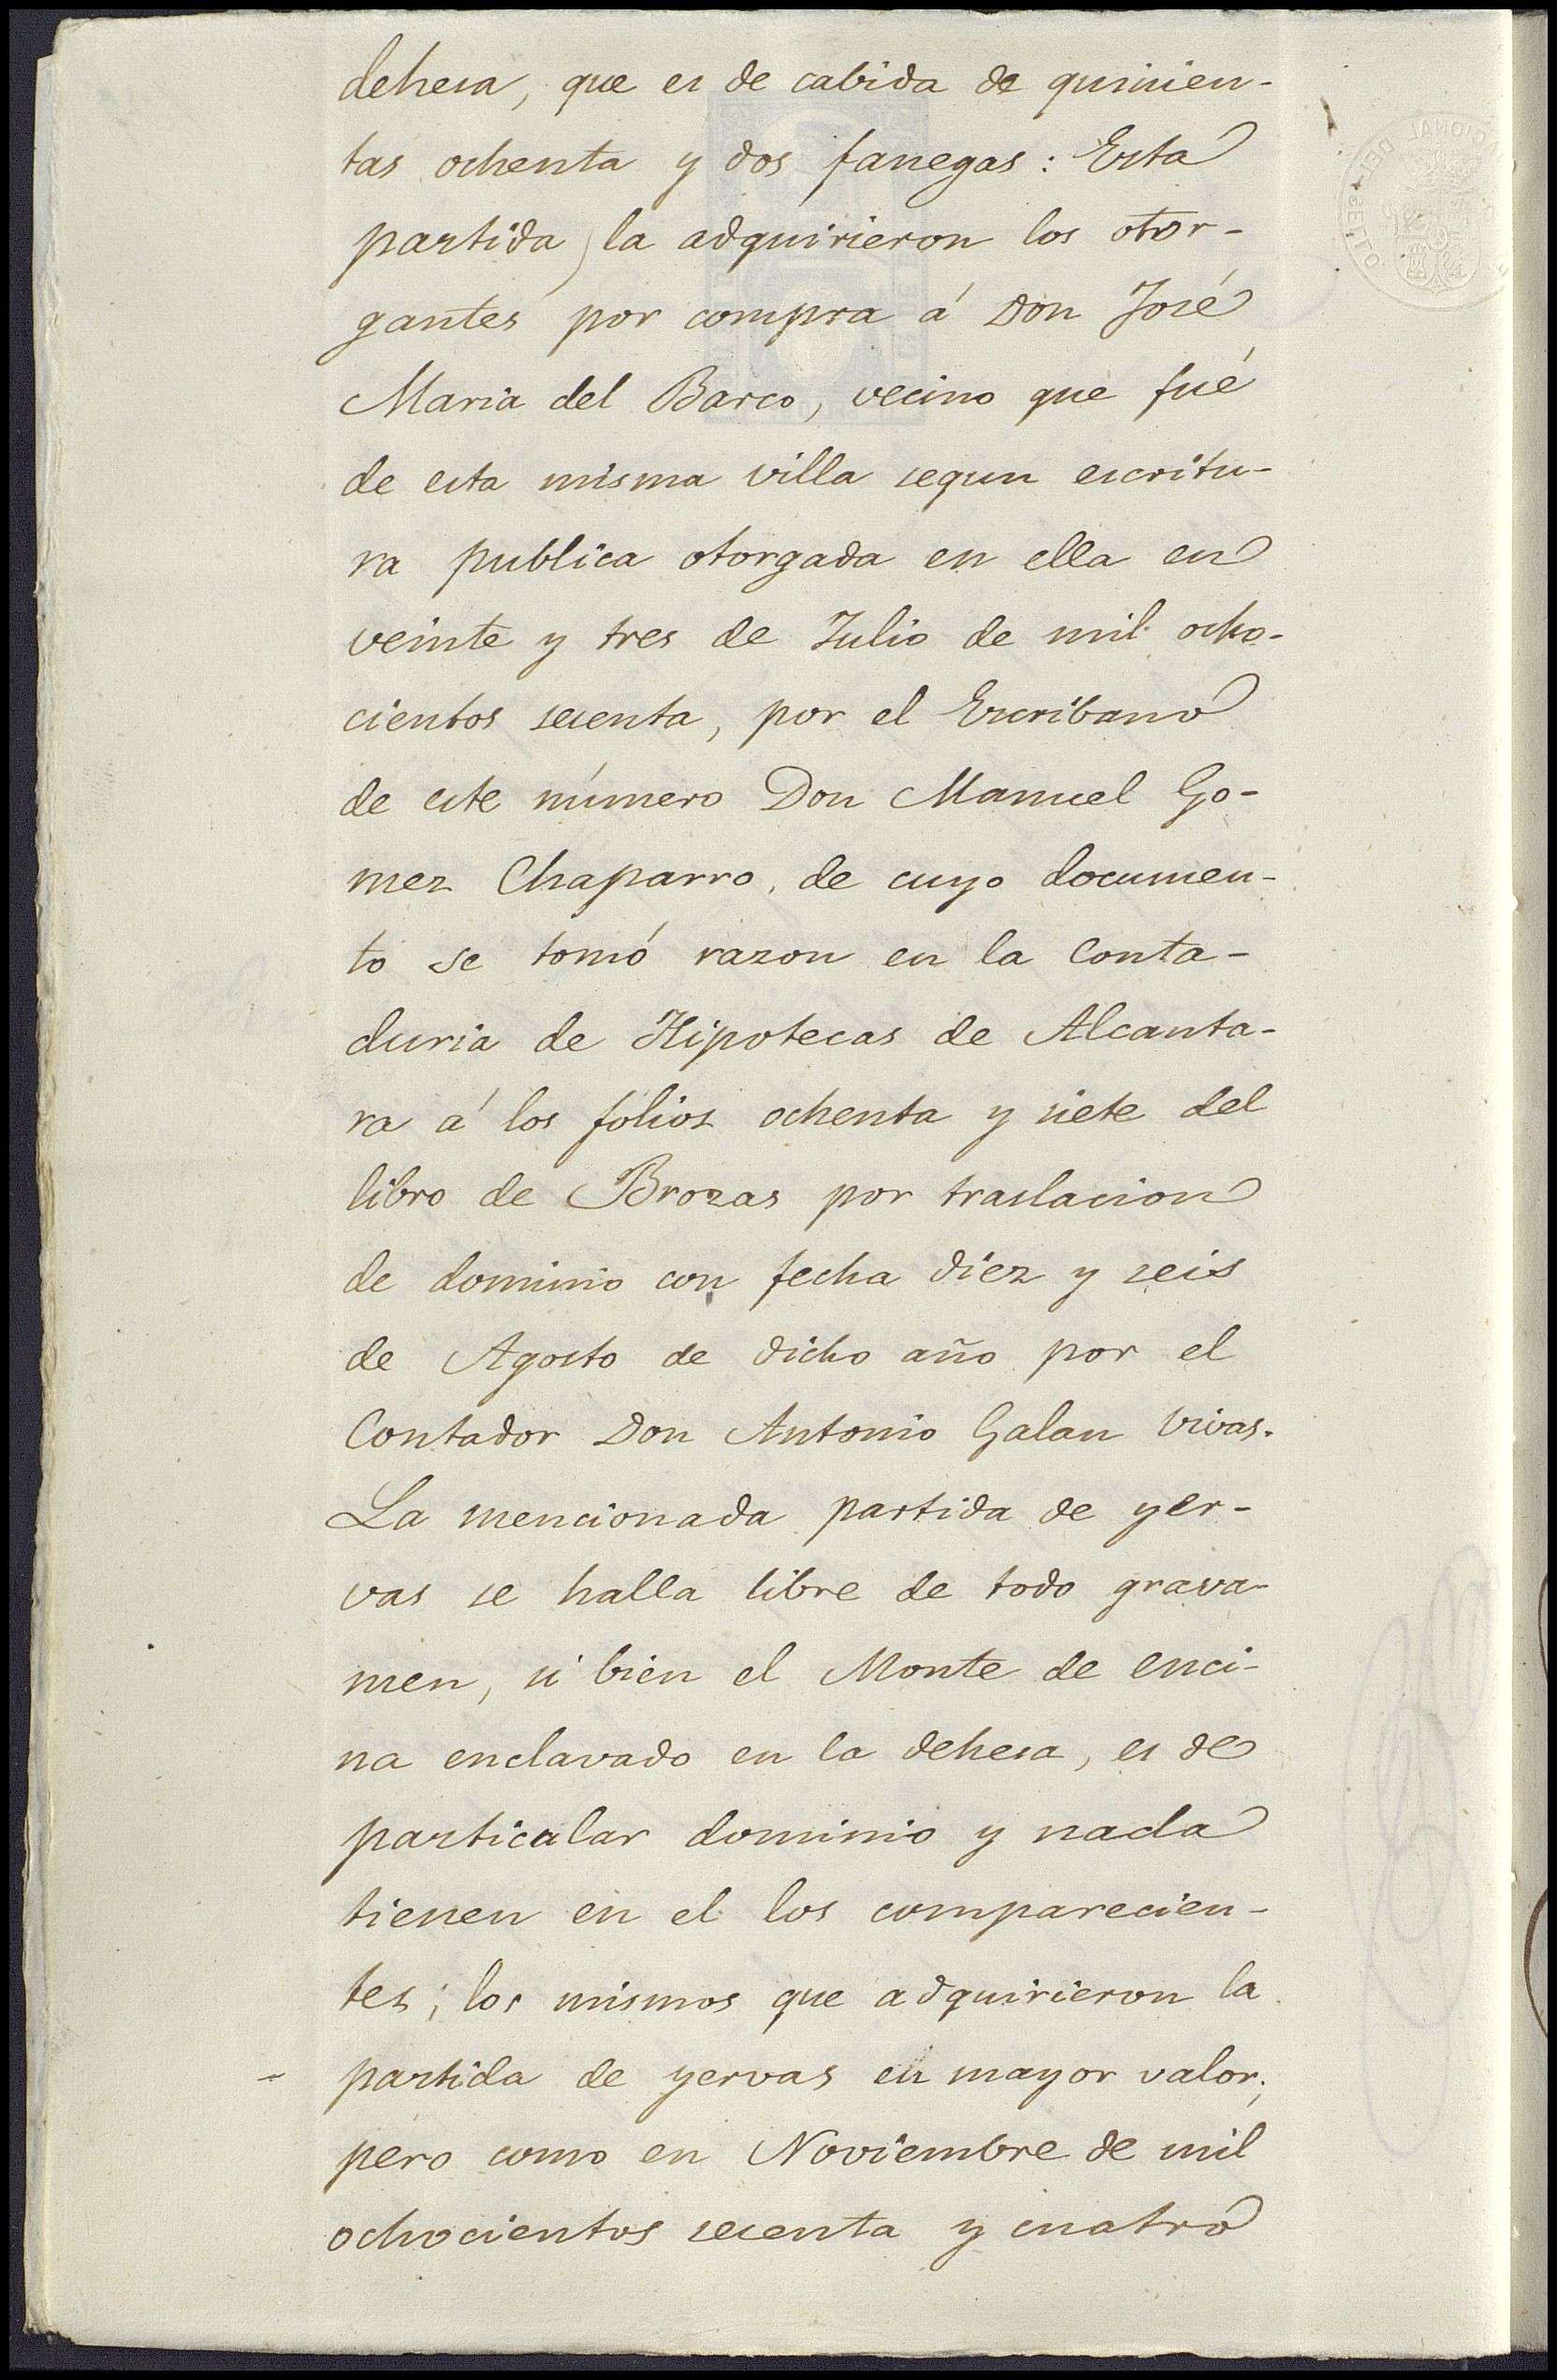 dehesa, que es de cabida de quinien-
tas ochenta y dos fanegas: Esta
partida la adquirieron los otor-
gantes por compra á Don José
Maria del Barco, vecino que fué
de esta misma villa segun escritu-
ra publica otorgada en ella en
veinte y tres de Julio de mil ocho-
cientos sesenta, por el Escribano
de este número Don Manuel Go-
mez Chaparro, de cuyo documen-
to se tomó razon en la Conta-
duria de Hipotecas de Alcanta-
ra á los folios ochenta y siete del
libro de Brozas por traslacion
de dominio con fecha diez y seis
de Agosto de dicho año por el
Contador Don Antonio Galan Vivas.
La mencionada partida de yer-
vas se halla libre de todo grava-
men, si bien el Monte de enci-
na enclavado en la dehesa, es de
particular dominio y nada
tienen en el los comparecien-
tes; los mismos que adquirieron la
partida de yervas en mayor valor;
pero como en Noviembre de mil
ochocientos sesenta y cuatro